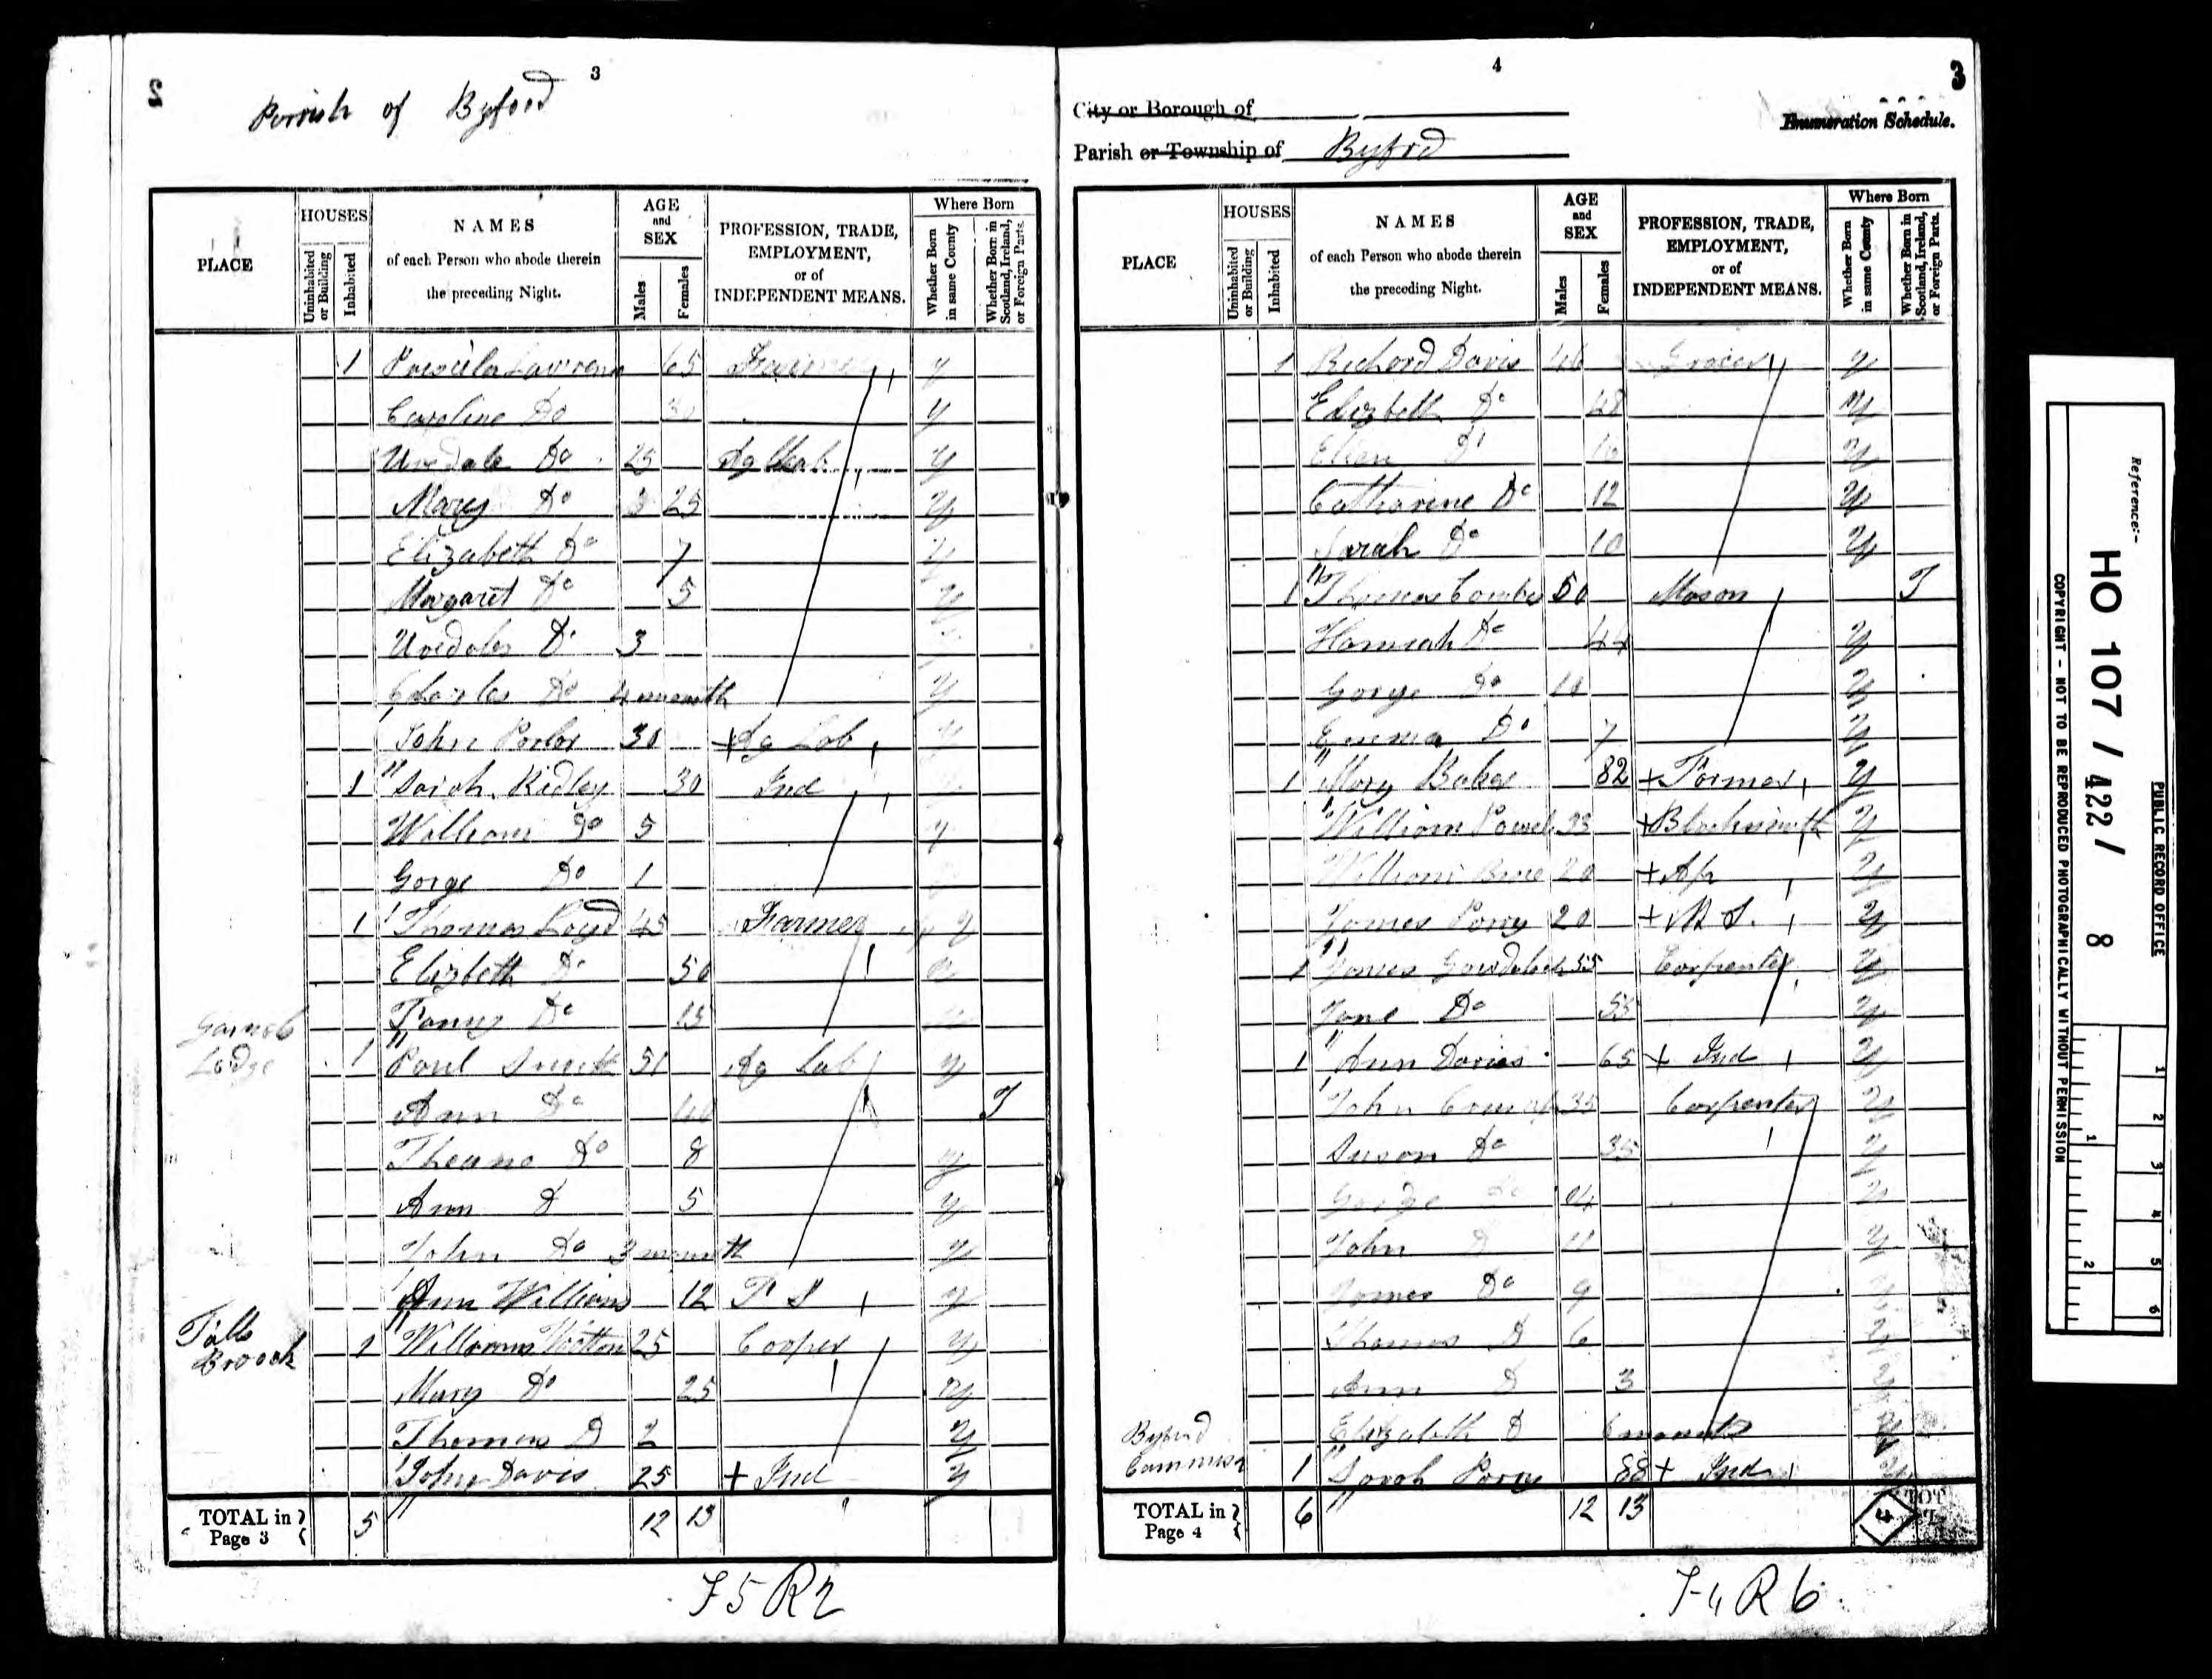 3
Parish of Byford
PLACE
HOUSES
Uninhabited or Building
Inhabited
NAMES
of each Person who abode therein
the preceding Night.
AGE
and
SEX
Males
Females
PROFESSION, TRADE,
EMPLOYMENT,
or of
INDEPENDENT MEANS.
Where Born
Whether Born in same County
Whether Born in Scotland, Ireland, or Foreign Parts.
1 65 y
Caroline Do 30 y
Uvedale Do 25 y
Mary Do 25 y
Elizabeth Do 7 y
Margaret Do 5 y
Do 3
Charles Do 4 month y
John 30 Ag Lob y
1 Sarah Ridley 30 Ind
William Do 5 y
Gorge Do 1
1 Thomas Loyd 45 Farmer y
Elizbeth Do 50 n
Fanny Do 15
Lodge 1 Paul 51 Ag Lab y
Ann Do 40 I
Do 8 y
Ann D 5 y
John Do 3 month y
Ann Williams 12 F S y
1 25 Cooper y
Mary Do 25 y
Thomas D 2 y
John Davis 25 + Ind y
TOTAL in Page 3 5 12 13
F5 R2
4
3
City or Borough of
Enumeration Schedule.
Parish or Township of Byford
PLACE
HOUSES
Uninhabited or Building
Inhabited
NAMES
of each Person who abode therein
the preceding Night.
AGE
and
SEX
Males
Females
PROFESSION, TRADE,
EMPLOYMENT,
or of
INDEPENDENT MEANS.
Where Born
Whether Born in same County
Whether Born in Scotland, Ireland, or Foreign Parts.
1 Richard Davis 46 Grocer y
Elizbeth Do 48 y
Ellen Do y
Catharine Do 12 y
Sarah Do 10 y
1 Thomas Combes 50 Mason I
Hannah Do 44 y
Gorge Do 10 y
Emma Do 7 y
1 Mary Baker 82 + Farmer y
William Powel 33 + Blacksmith y
William 20 + Ap y
James Parry 20 + M S. y
1 James 55 Carpenter y
Jane Do 55 y
1 Ann Davies 65 + Ind y
John 35 Carpenter y
Susan Do 35 y
Do 14 y
John D 11 y
James Do 9
Thomas D 6 y
Ann D 3 y
Elizabeth D 6 month y
Byford Common 1 Sarah Parry 88 + Ind y
TOTAL in Page 4 6 12 13
F4 R6
Reference:-
HO 107 / 422 / 8
PUBLIC RECORD OFFICE
COPYRIGHT - NOT TO BE REPRODUCED PHOTOGRAPHICALLY WITHOUT PERMISSION
1 2 3 4 5 6
1 2